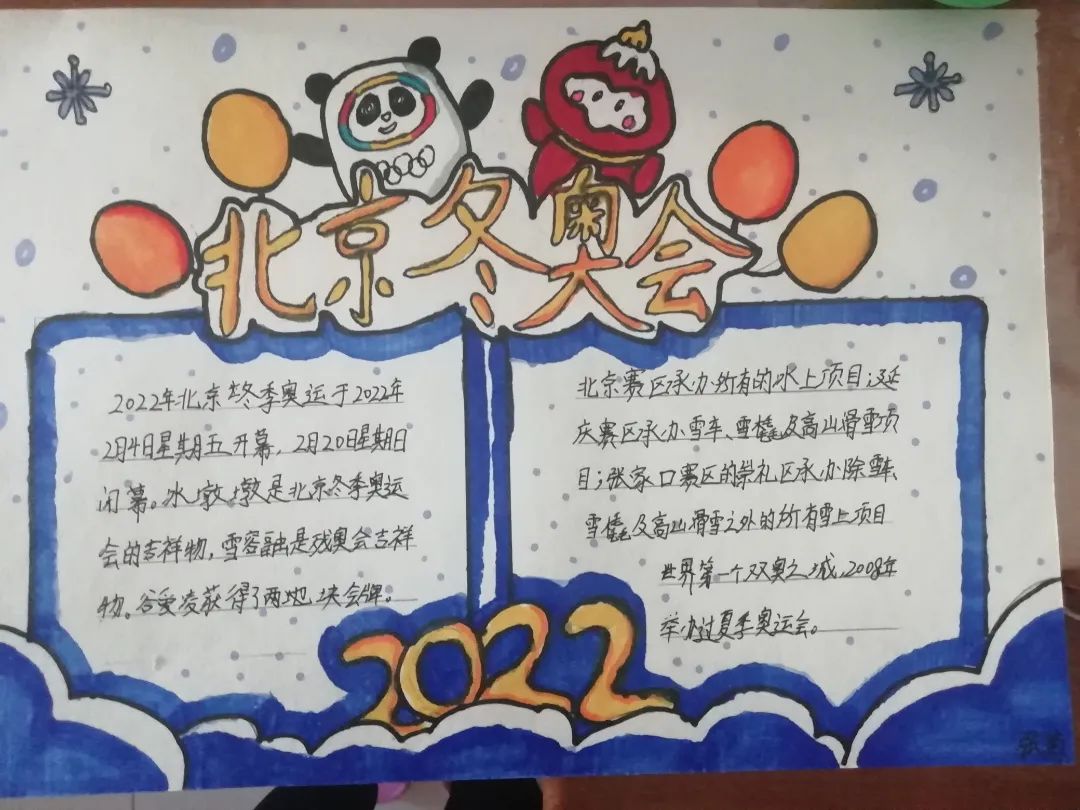 北京冬奥会
2022年北京冬季奥运于2022年
2月4日星期五开幕，2月20日星期日
闭幕。冰墩墩是北京冬季奥运
会的吉祥物，雪容融是残奥会吉祥
物。谷爱凌获得了两地块会牌。
北京赛区承办所有的水上项目；延
庆赛区承办雪车、雪橇及高山滑雪项
目；张家口赛区的崇礼区承办除雪车
雪橇及高山滑雪之外的所有雪上项目
世界第一个双奥之城，2008年
举办过夏季奥运会。
2022
张